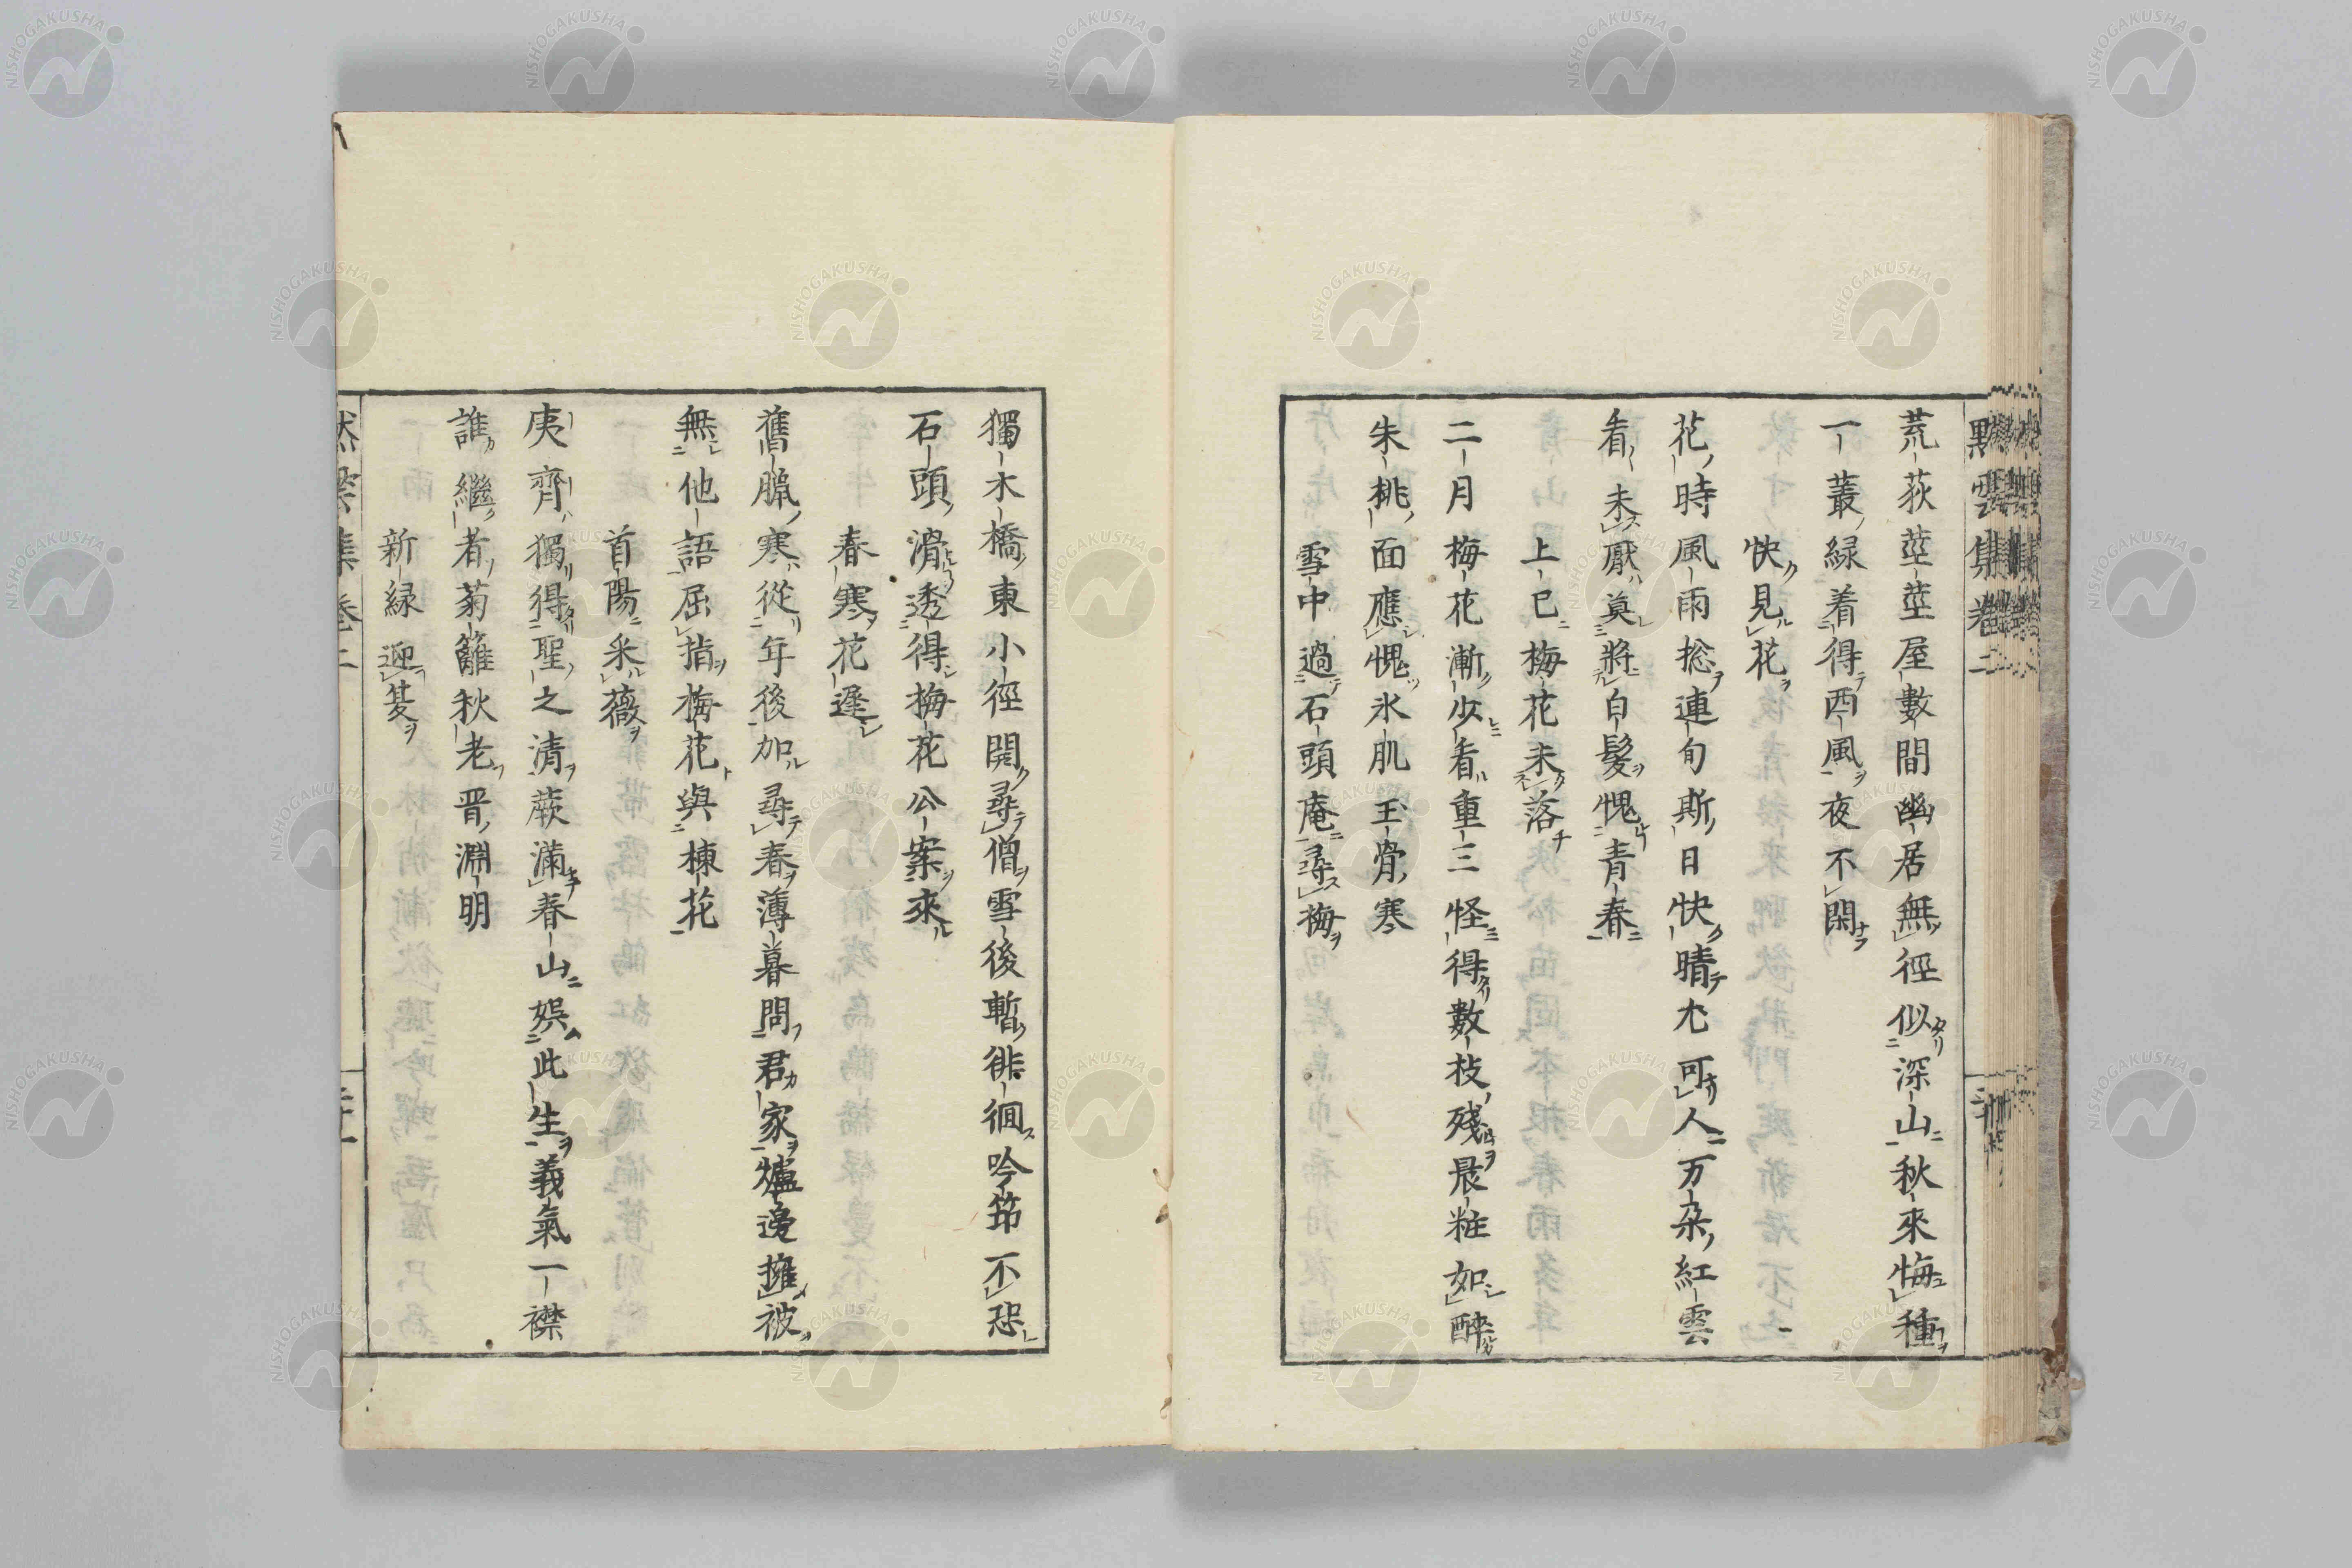 默雲集卷二
荒荻莖莖屋數間幽居無徑似深山秋來悔種
一叢緑着得西風夜不閑
快見花
花時風雨捴連旬斯日快晴尤可人万朶紅雲
看未厭莫將白髮愧青春
上巳梅花未落
二月梅花漸少看重三怪得數枝殘晨粧如醉
朱桃面應愧氷肌玉骨寒
雪中過石頭庵尋梅
獨木橋東小徑開尋僧雪後暫徘徊吟筇不恐
石頭滑透得梅花公案來
春寒花遲
舊臘寒從年後加尋春薄暮問君家爐邊擁被
無他語屈指梅花與棟花
首陽采薇
夷齊獨得聖之清蕨滿春山娯此生義氣一襟
誰繼者菊籬秋老晋淵明
新緑迎夏
NISHOGAKUSHA